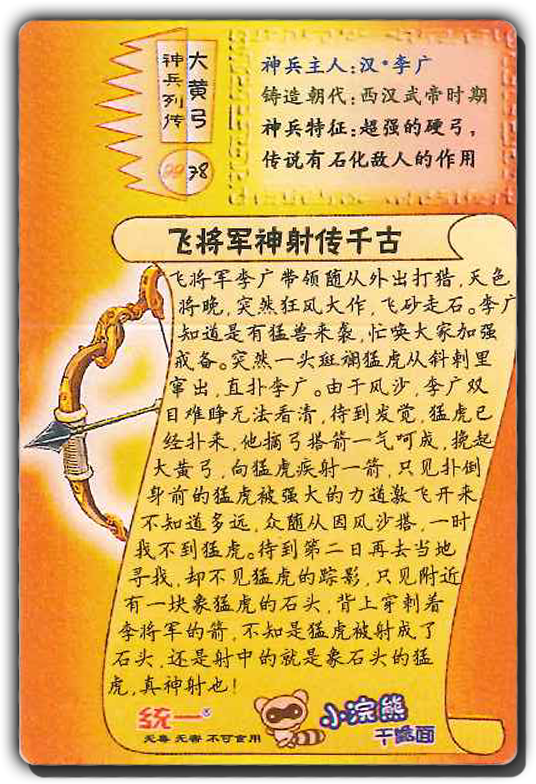 大黄弓
神兵列传
78
神兵主人:汉·李广
铸造朝代:西汉武帝时期
神兵特征:超强的硬弓,
传说有石化敌人的作用
飞将军神射传千古
飞将军李广带领随从外出打猎,天色
将晚,突然狂风大作,飞砂走石。李广
知道是有猛兽来袭,忙唤大家加强
戒备。突然一头斑斓猛虎从斜刺里
窜出,直扑李广。由于风沙,李广双
目难睁无法看清,待到发觉,猛虎已
经扑来,他摘弓搭箭一气呵成,挽起
大黄弓,向猛虎疾射一箭,只见扑倒
身前的猛虎被强大的力道激飞开来
不知道多远,众随从因风沙搭,一时
找不到猛虎。待到第二日再去当地
寻找,却不见猛虎的踪影,只见附近
有一块象猛虎的石头,背上穿刺着
李将军的箭,不知是猛虎被射成了
石头,还是射中的就是象石头的猛
虎,真神射也!
统一®
无毒 无害 不可食用
小浣熊
干脆面